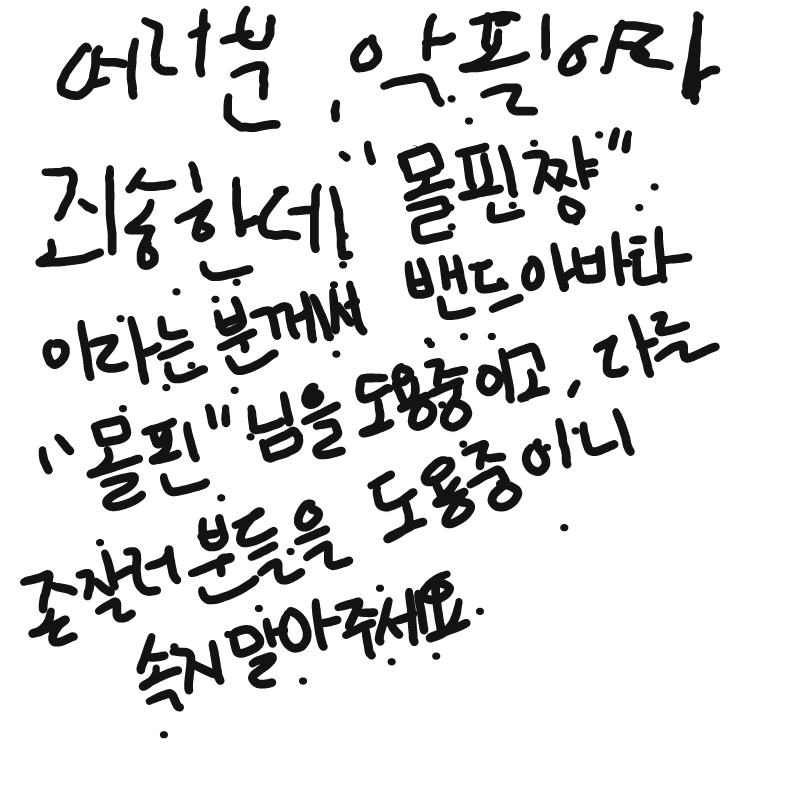 여러분, 악필이라
죄송한데! "몰핀짱"
이라는 분께서 밴드아바타
"몰핀"님을 도용중이고, 다른
존잘러 분들을 도용중이니
속지말아주세요